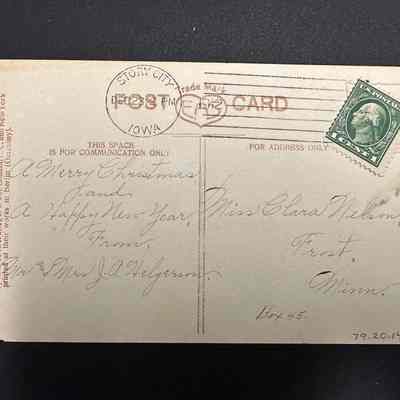 STORY CITY
IOWA
PM
Trade Mark
POST CARD
THIS SPACE
IS FOR COMMUNICATION ONLY
FOR ADDRESS ONLY
A Merry Christmas
and
A Happy New Year,
From
Mr & Mrs J.A. Helgerson.
Miss Clara Nelson,
Frost,
Minn.
Box 45.
79.20.14
New York
printed at their works in Berlin (Germany).